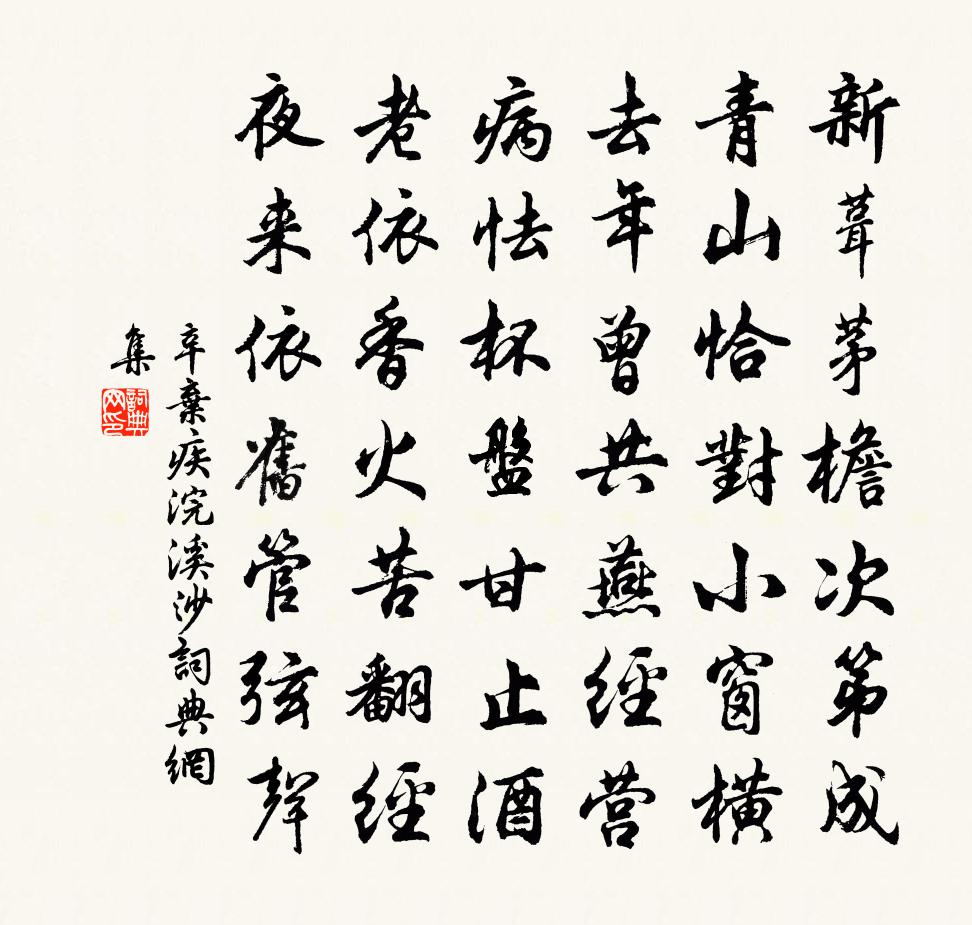 新葺茅檐次第成
青山恰對小窗橫
去年曾共燕經营
病怯杯盤甘止酒
老依香火苦翻經
夜来依舊管弦聲
辛棄疾浣溪沙詞典網
集
詞典
网印